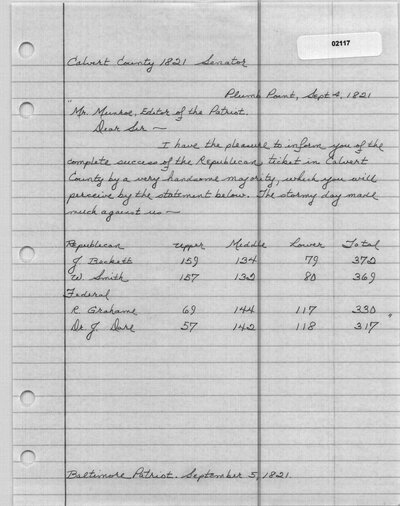 02117
Calvert County 1821 Senator
Plumb Point, Sept 4, 1821
"Mr. Munroe, Editor of the Patriot.
Dear Sir ~
I have the pleasure to inform you of the
complete success of the Republican ticket in Calvert
County by a very handsome majority, which you will
perceive by the statement below. The stormy day made
much against us ~
Republican Upper Middle Lower Total
J Beckett 159 134 79 372
W Smith 157 132 80 369
Federal
R Grahame 69 144 117 330
Dr. J Dare 57 142 118 317 "
Baltimore Patriot. September 5, 1821.